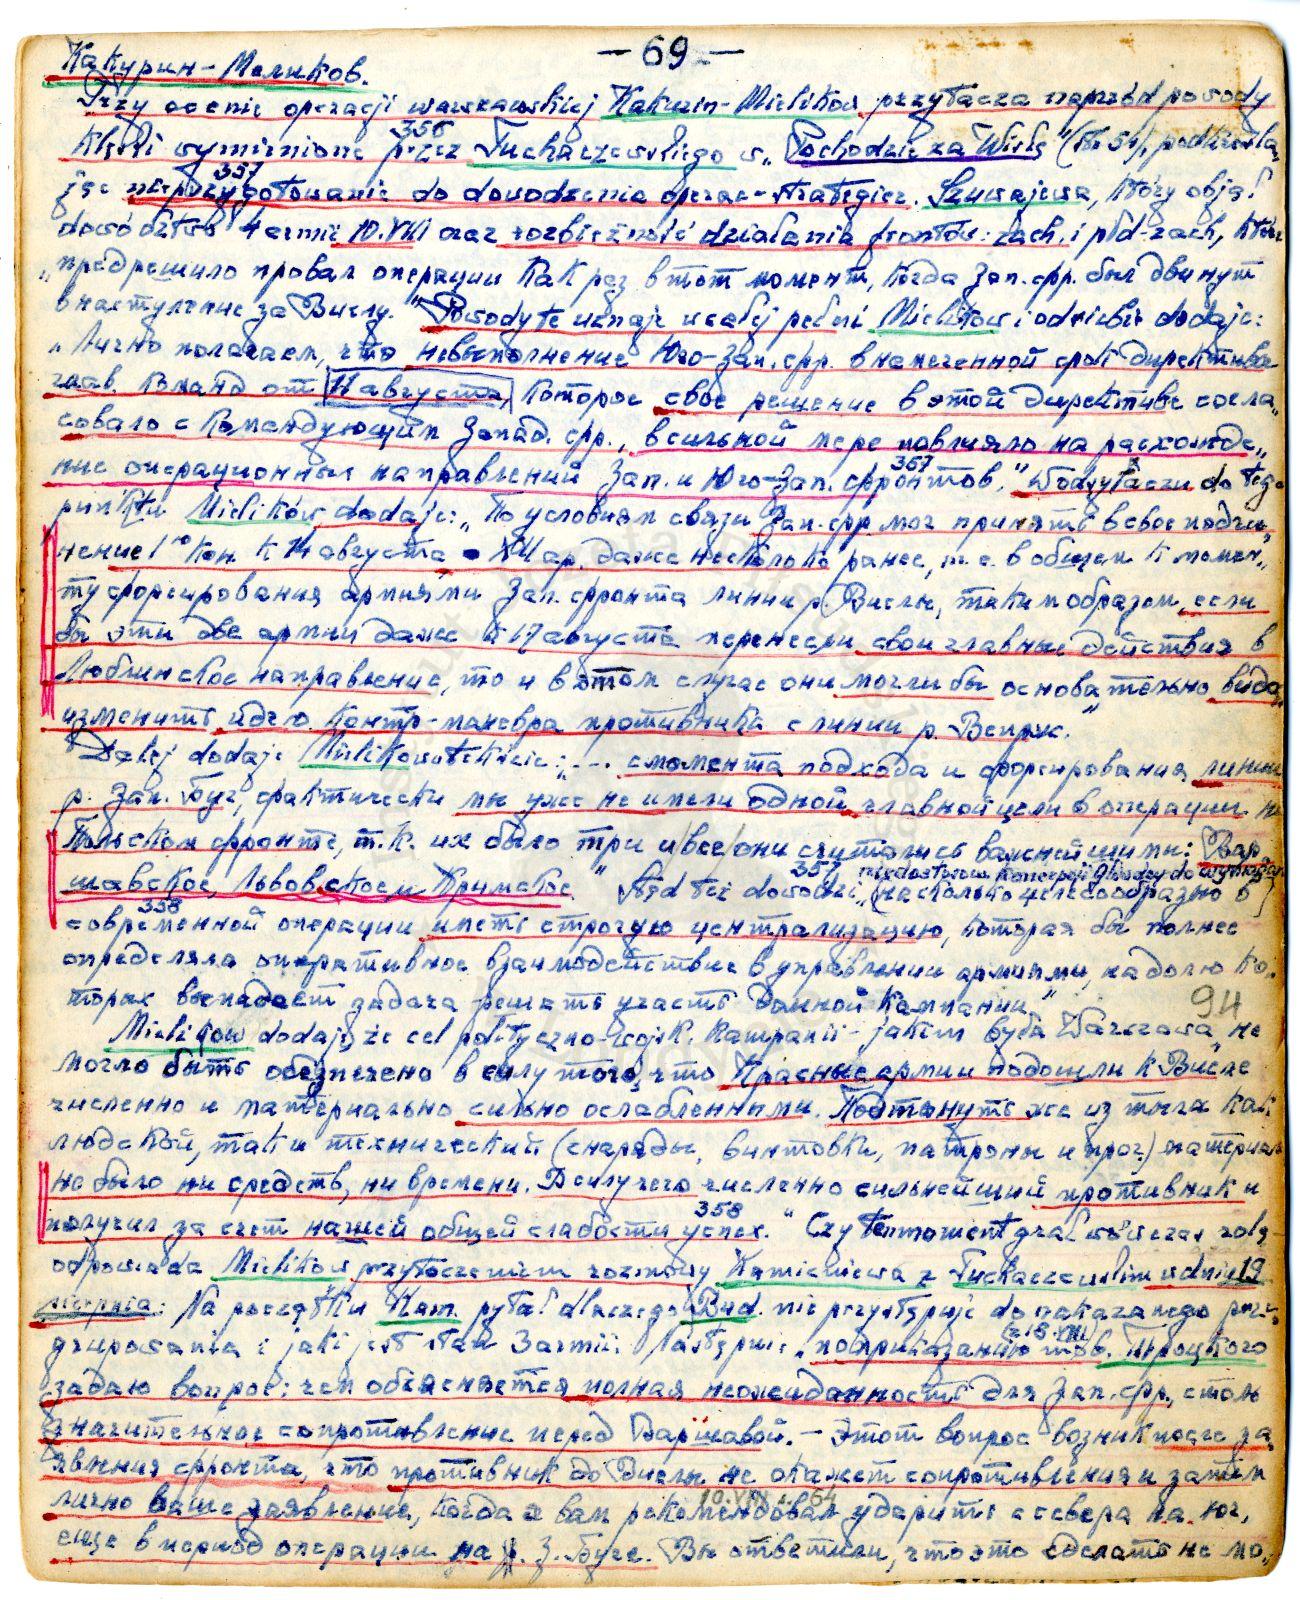 — 69 —
Какурин–Меликов.
Przy ocenie operacji warszawskiej Kakurin–Mielikow przytacza naprzód powody
klęski wymienione przez 356 Tuchaczewskiego w „Pochodzie za Wisłę” (str 51), podkreśla-
jąc 357 nieprzygotowanie do dowodzenia operac–strategicz. Szuwajewa, który objął
dowództwo 4 armii 10.VIII oraz rozbieżność działania frontów: zach. i płd–zach,
„предрешило провал операции как раз в тот момент, когда Зап. фр. был двинут
в наступление за Вислу.” Powody te uznaje w całej pełni Mielikow i od siebie dodaje:
„Лично полагаем, что невыполнение Юго–Зап. фр. в намеченной срок директивы
главн. команд от 11 августа, которое свое решение в этой директиве согла„
совало с командующим Запад. фр., в сильной мере повлияло на расхожде„
ние операционных направлений Зап. и Юго–Зап. фронтов.” 357 W odsyłaczu do tego
punktu Mielikow dodaje: „По условиям связи Зап. фр. мог принять в свое подчи„
нение 1 Кон. к 14 августа а XII ар. даже несколько ранее, т. е. в общем к момен„
ту форсирования армиями Зап. фронта линии р. Вислы, таким образом, если
бы эти две армии даже к 17 августа перенесли свои главные действия в
Люблинское направление, то и в этом случае они могли бы основательно видо„
изменить идею контр–маневра противника с линии р. Вепрж.”
Dalej dodaje Mielikow: „... с момента подхода и форсирования линии
р. Зап. Буг, фактически мы уже не имели одной главной цели в операции на
Польском фронте, т. к. их было три и все они считались важнейшими: Вар
шавское, Львовское и Крымское.” 357 Stąd też dowodzi
„(насколько целесообразно в
358 современной операции иметь строгую централизацию, которая бы полнее
определяла оперативное взаимодействие в управлении армиями, на долю ко„
торых выпадает задача решать участь данной кампании.” 94
Mielikow dodaje, że cel polityczno–wojsk. kampanii – jakim była Warszawa, „не
могло быть обезпечено в силу того, что Красные армии подошли к Висле
численно и материально сильно ослабленными. Подтянуть же из тыла как
людской, так и технический (снаряды, винтовки, патроны и проч.) материал
не было ни средств, ни времени. В силу чего численно сильнейший противник и
получил за счет нашей общей слабости успех.” 358 Czy ten moment grał wówczas rolę –
odpowiada Mielikow przytoczeniem rozmowy Kamieniewa z Tuchaczewskim w dniu 19
sierpnia: Na początku Kam. pyta! dlaczego Bud. nie przystępuje do nakazanego prze„
grupowania i jaki jest stan 3 armii. Następnie: „по приказанию (z 18.VIII) тов. Троцкого
задаю вопрос: чем объясняется полная неожиданность для Зап. фр., столь
значительное сопротивление перед Варшавой. – Этот вопрос возник после за„
явления фронта, что противник до Вислы не окажет сопротивления и затем
лично ваше заявление, когда я вам рекомендовал 10.VIII ударить с севера на юг,
еще в период операции на р. З. Буге. Вы ответили, что это сделать не мо„